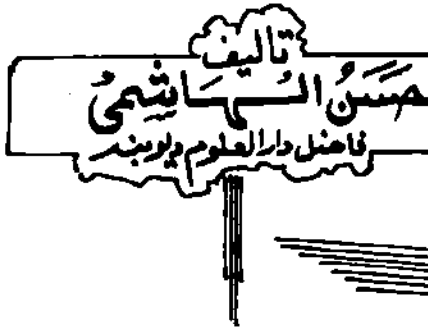 تالیف
حسَنُ الہَاشِمیُ
فاضل دارالعلوم دیوبند